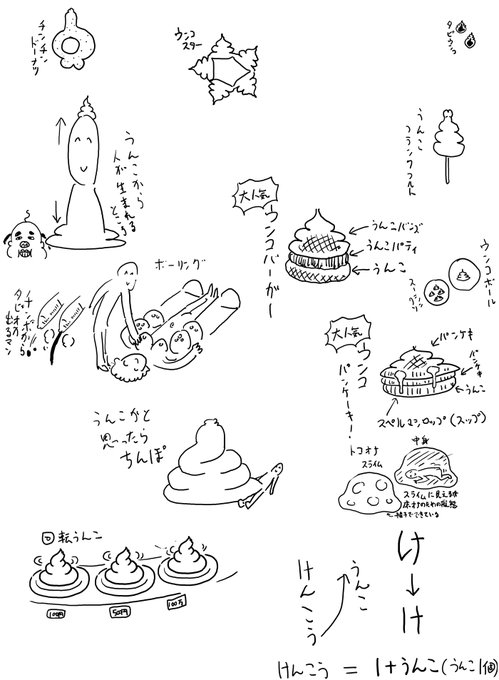 チンチン
ドーナツ
ウンコ
スター
タピウンコ
うんこ
フランクフルト
うんこから
人が生まれる
ところ
大人気
ウンコバーガー
うんこバンズ
うんこパティ
うんこ
ウンコボール
ボーリング
チンポから
タピオカ
でるマン
大人気
ウンコ
パンケーキ!
パンケキ
パンケ
うんこ
スペルマシロップ(スップ)
うんこかと
思ったら
ちんぽ
トコオケ
スライム
中身
スライムに見える
回転うんこ
100円
50円
100万
け
け
けんこう
うんこ
けんこう = 1+うんこ(うんこ1個)